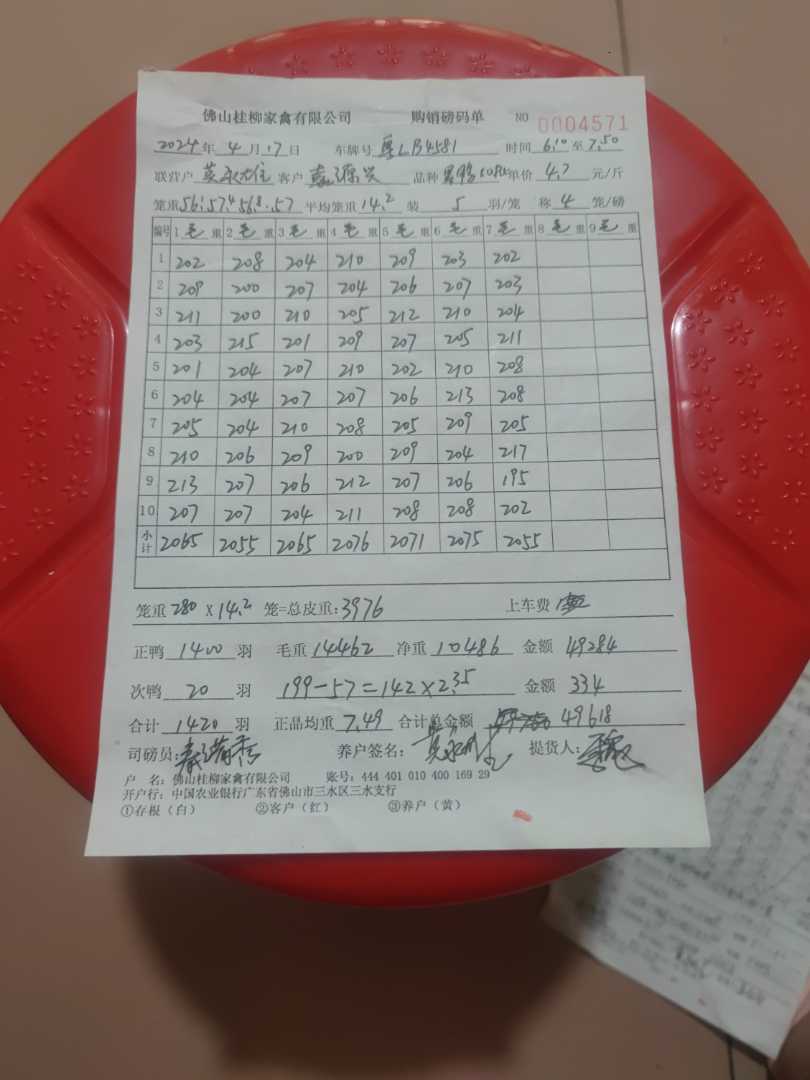 佛山桂柳家禽有限公司 购销磅码单 NO 0004571
2024年4月17日 车牌号 粤LB4581 时间 6:10至7:50
联营户 客户 嘉源兴 品种 单价 4.7 元/斤
笼重56.57.4 56.8.57 平均笼重14.2 装5羽/笼 称4笼/磅
编号 1毛重 2毛重 3毛重 4毛重 5毛重 6毛重 7毛重 8毛重 9毛重
1 202 208 204 210 209 203 202
2 209 200 207 204 206 207 203
3 211 200 210 205 212 210 204
4 203 215 201 209 207 205 211
5 201 204 207 210 202 210 208
6 204 204 207 207 206 213 208
7 205 204 210 208 205 209 205
8 210 206 209 200 209 204 217
9 213 207 206 212 207 206 195
10 207 207 204 211 208 208 202
小计 2065 2055 2065 2076 2071 2075 2055
笼重280X14.2笼=总皮重:3976 上车费
正鸭1400羽 毛重14462 净重10486 金额49284
次鸭20羽 199-57=142×2.35 金额334
合计1420羽 正品均重7.49 合计总金额 49618
司磅员: 养户签名: 提货人:
户 名:佛山桂柳家禽有限公司 账号:444 401 010 400 169 29
开户行:中国农业银行广东省佛山市三水区三水支行
①存根(白) ②客户(红) ③养户(黄)